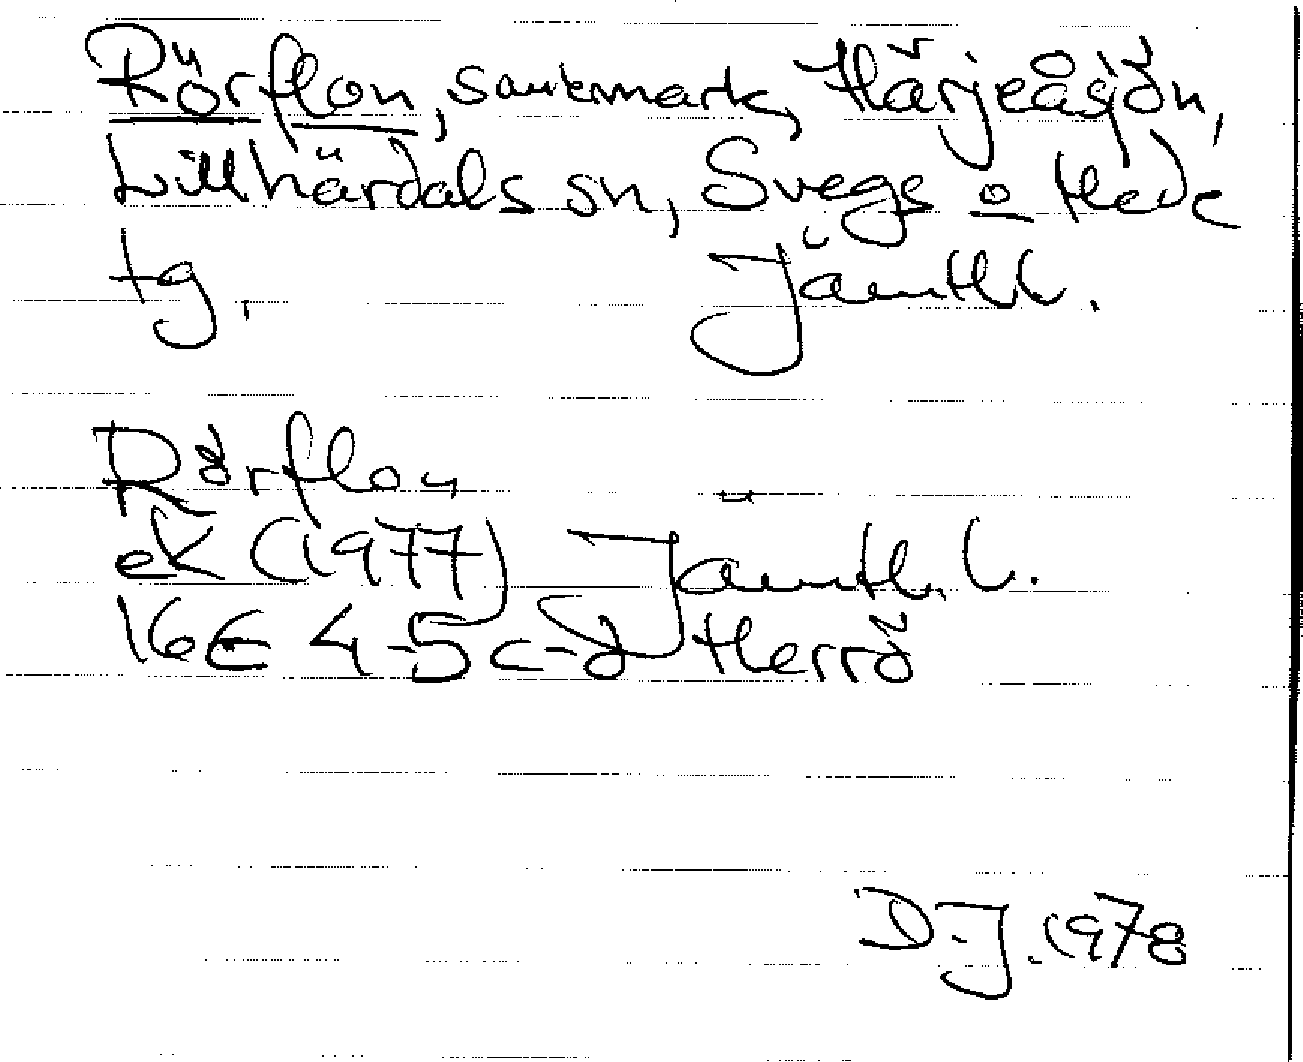 Rörflon, sankmark, Härjeåsjön,
Lillhärdals sn, Svegs o Hede
tg. Jämtl.l.
Rörflon
ek (1977) Jämtl. l.
16E 4-5 c-d Herrö
D.J. 1978